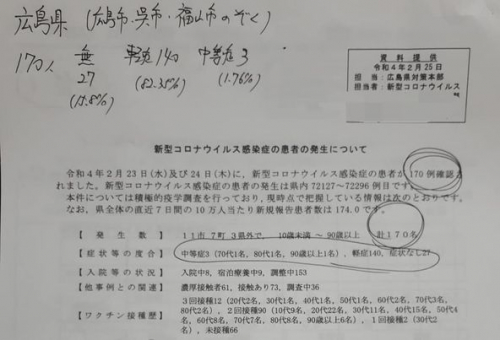 広島県 (広島市・呉市・福山市のぞく)
170人 無 軽症 140 中等症 3
27 (82.35%) (1.76%)
(15.8%)
資料提供
令和4年2月25日
担当:広島県対策本部
担当者:新型コロナウイルス
新型コロナウイルス感染症の患者の発生について
令和4年2月23日(水)及び24日(木)に、新型コロナウイルス感染症の患者が170例確認さ
れました。新型コロナウイルス感染症の患者の発生は県内72127~72296例目です。
本件については積極的疫学調査を行っており、現時点で把握している情報は次のとおりです。
なお、県全体の直近7日間の10万人当たり新規報告患者数は174.0です。
【発生数】 11市7町3県外で、10歳未満~90歳以上 計170名
【症状等の度合】 中等症3(70代1名、80代1名、90歳以上1名)、軽症140、症状なし27
【入院等の状況】 入院中8、宿泊療養中9、調整中153
【他事例との関連】 濃厚接触者61、接触あり73、調査中36
【ワクチン接種歴】 3回接種12(20代2名、30代1名、40代1名、50代1名、60代2名、70代3名、
80代2名)、2回接種90(10代9名、20代22名、30代11名、40代15名、50代4
名、60代8名、70代7名、80代8名、90歳以上6名)、1回接種2(30代2
名)、未接種66